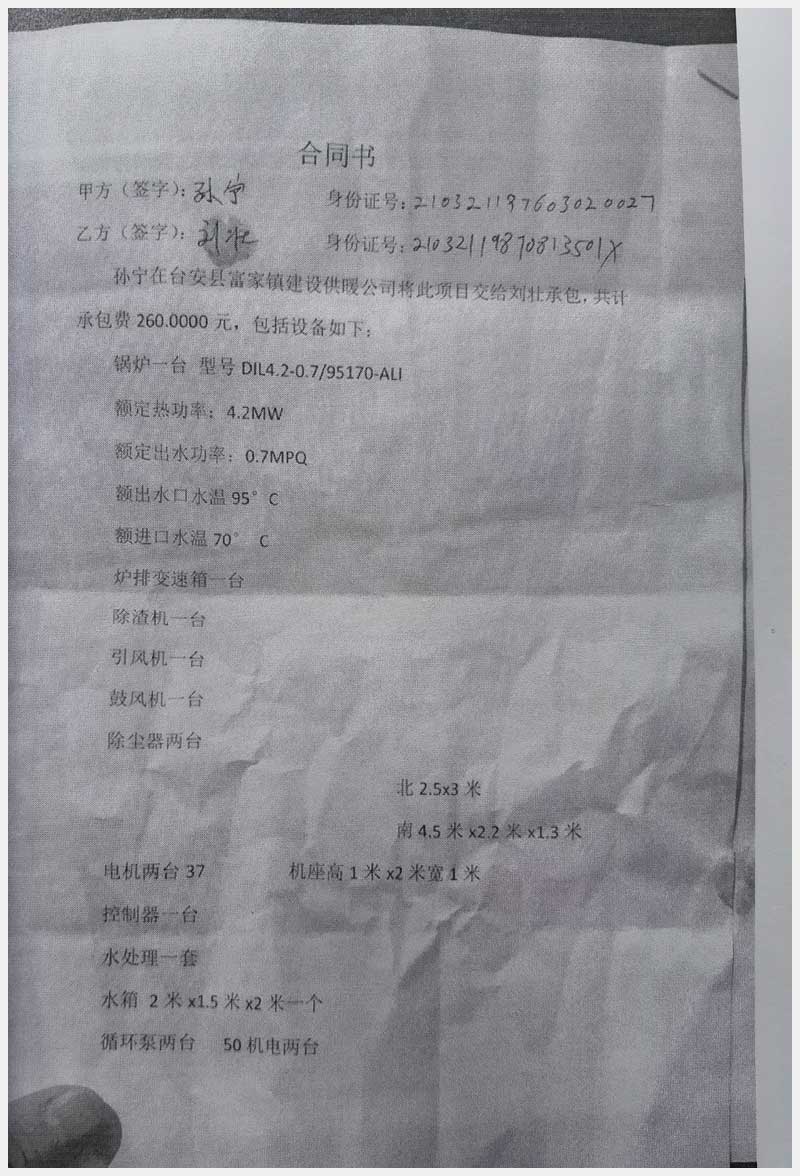 合同书
甲方（签字）：孙宁 身份证号：210321197603020027
乙方（签字）：刘壮 身份证号：21032119870813501X
孙宁在台安县富家镇建设供暖公司将此项目交给刘壮承包，共计
承包费 260.0000 元，包括设备如下：
锅炉一台 型号 DIL4.2-0.7/95170-ALI
额定热功率：4.2MW
额定出水功率：0.7MPQ
额出水口水温 95°C
额进口水温 70° C
炉排变速箱一台
除渣机一台
引风机一台
鼓风机一台
除尘器两台
北 2.5x3 米
南 4.5 米 x2.2 米 x1.3 米
电机两台 37 机座高 1 米 x2 米宽 1 米
控制器一台
水处理一套
水箱 2 米 x1.5 米 x2 米一个
循环泵两台 50 机电两台